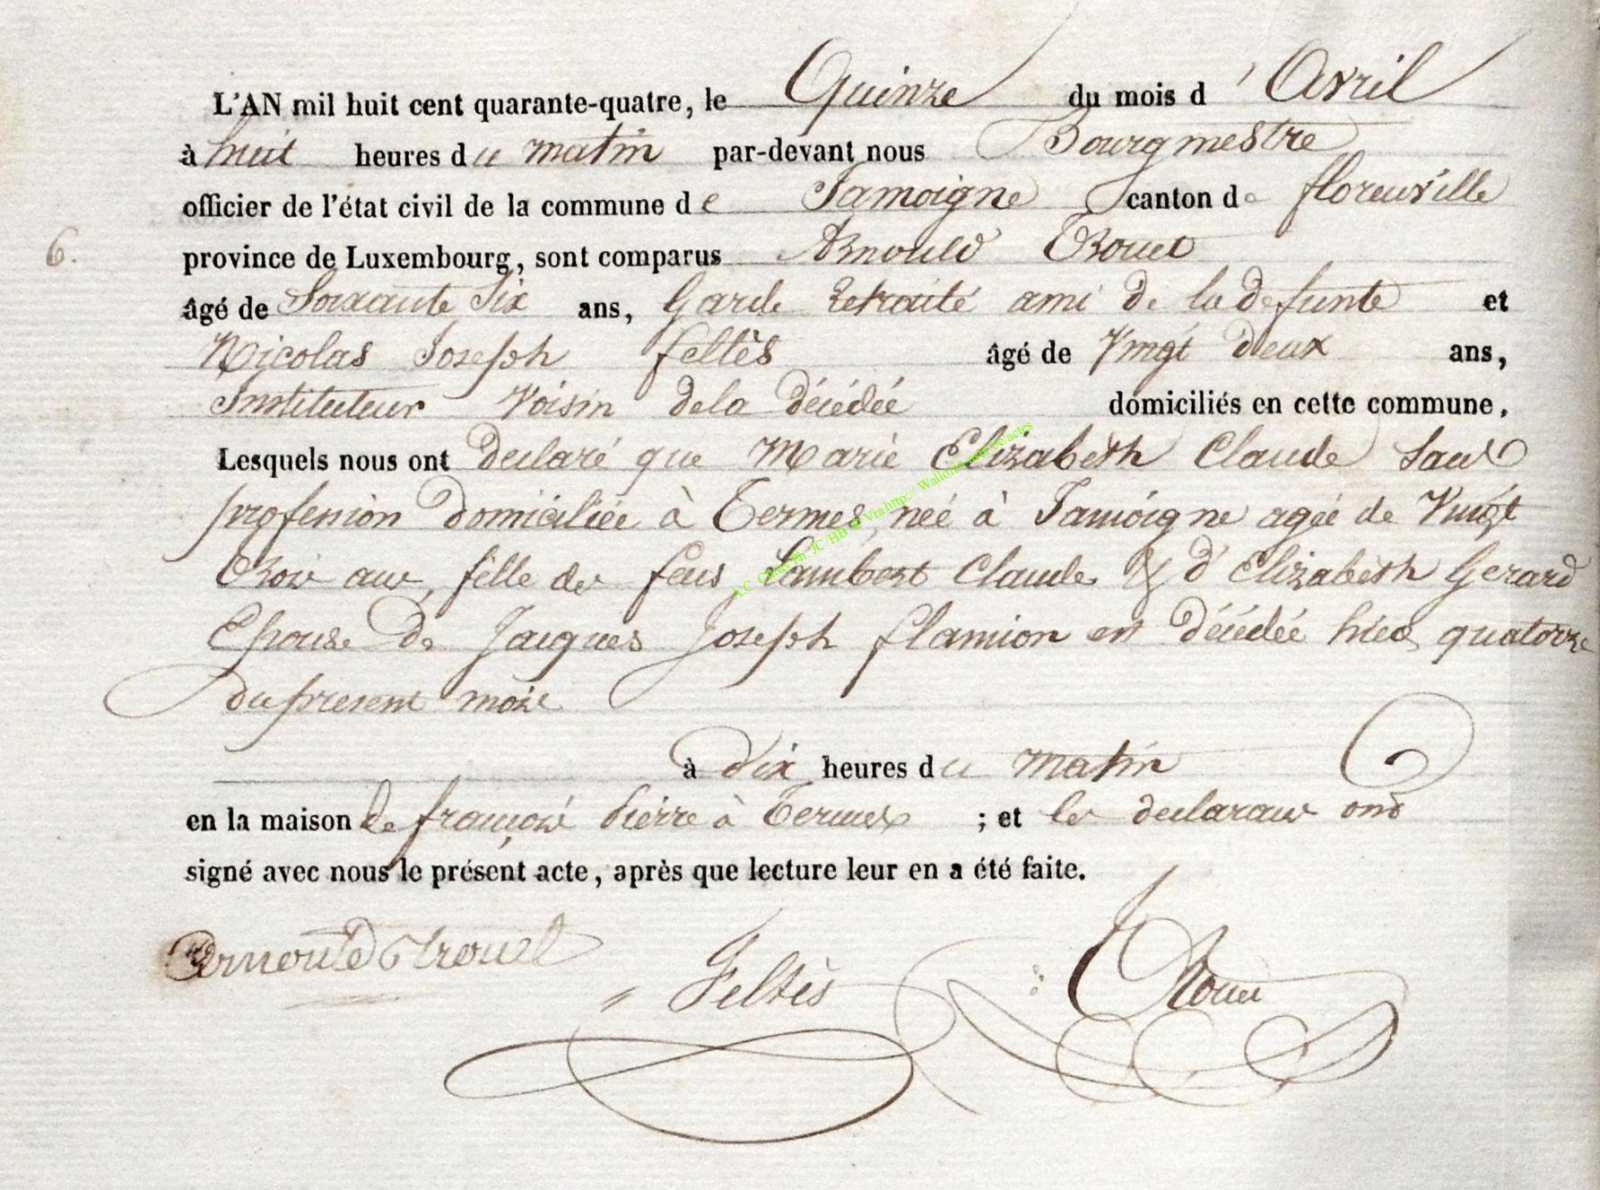 L'AN mil huit cent quarante-quatre, le Quinze du mois d'Avril
à huit heures du matin par-devant nous Bourgmestre
officier de l'état civil de la commune de Jamoigne canton de florenville
6.
province de Luxembourg, sont comparus Arnould Trouet
âgé de Soixante Six ans, Garde retraité ami de la defunte et
Nicolas Joseph feltès âgé de Vingt deux ans,
Instituteur Voisin dela décédée domiciliés en cette commune.
Lesquels nous ont declaré que Marie Elizabeth Claude Sans
profession domiciliée à Termes, née à Jamoigne agée de Vingt
trois ans, fille de feus Lambert Claude & d'Elizabeth Gerard
Epouse de Jacques Joseph flamion est décédée hier quatorze
du present mois
à dix heures du matin
en la maison de françois Pierre à Termes ; et les declarans ont
signé avec nous le présent acte, après que lecture leur en a été faite.
Arnould Trouet Feltès